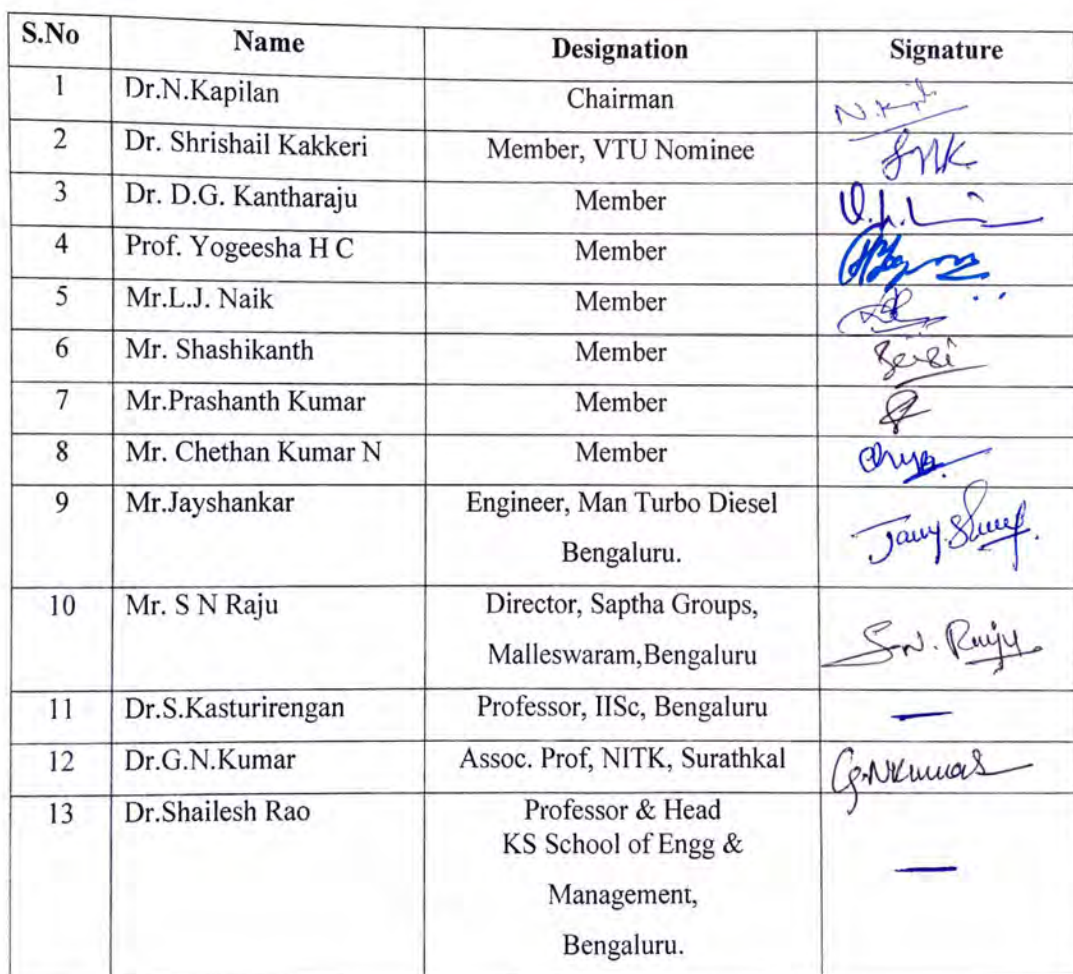 S.No Name Designation Signature
1 Dr.N.Kapilan Chairman N.Kapil
2 Dr. Shrishail Kakkeri Member, VTU Nominee SMK
3 Dr. D.G. Kantharaju Member
4 Prof. Yogeesha H C Member
5 Mr.L.J. Naik Member
6 Mr. Shashikanth Member
7 Mr.Prashanth Kumar Member
8 Mr. Chethan Kumar N Member
9 Mr.Jayshankar Engineer, Man Turbo Diesel
Bengaluru.
10 Mr. S N Raju Director, Saptha Groups,
Malleswaram,Bengaluru S.N. Raju
11 Dr.S.Kasturirengan Professor, IISc, Bengaluru —
12 Dr.G.N.Kumar Assoc. Prof, NITK, Surathkal G.NKumar
13 Dr.Shailesh Rao Professor & Head
KS School of Engg &
Management, —
Bengaluru.